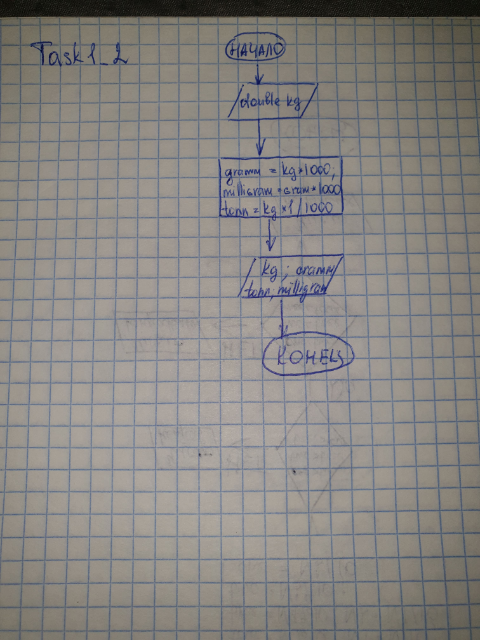 Task1_2
НАЧАЛО
double kg
gramm = kg*1000;
milligram = gram*1000
tonn = kg*1/1000
kg; gramm
tonn, milligram
КОНЕЦ